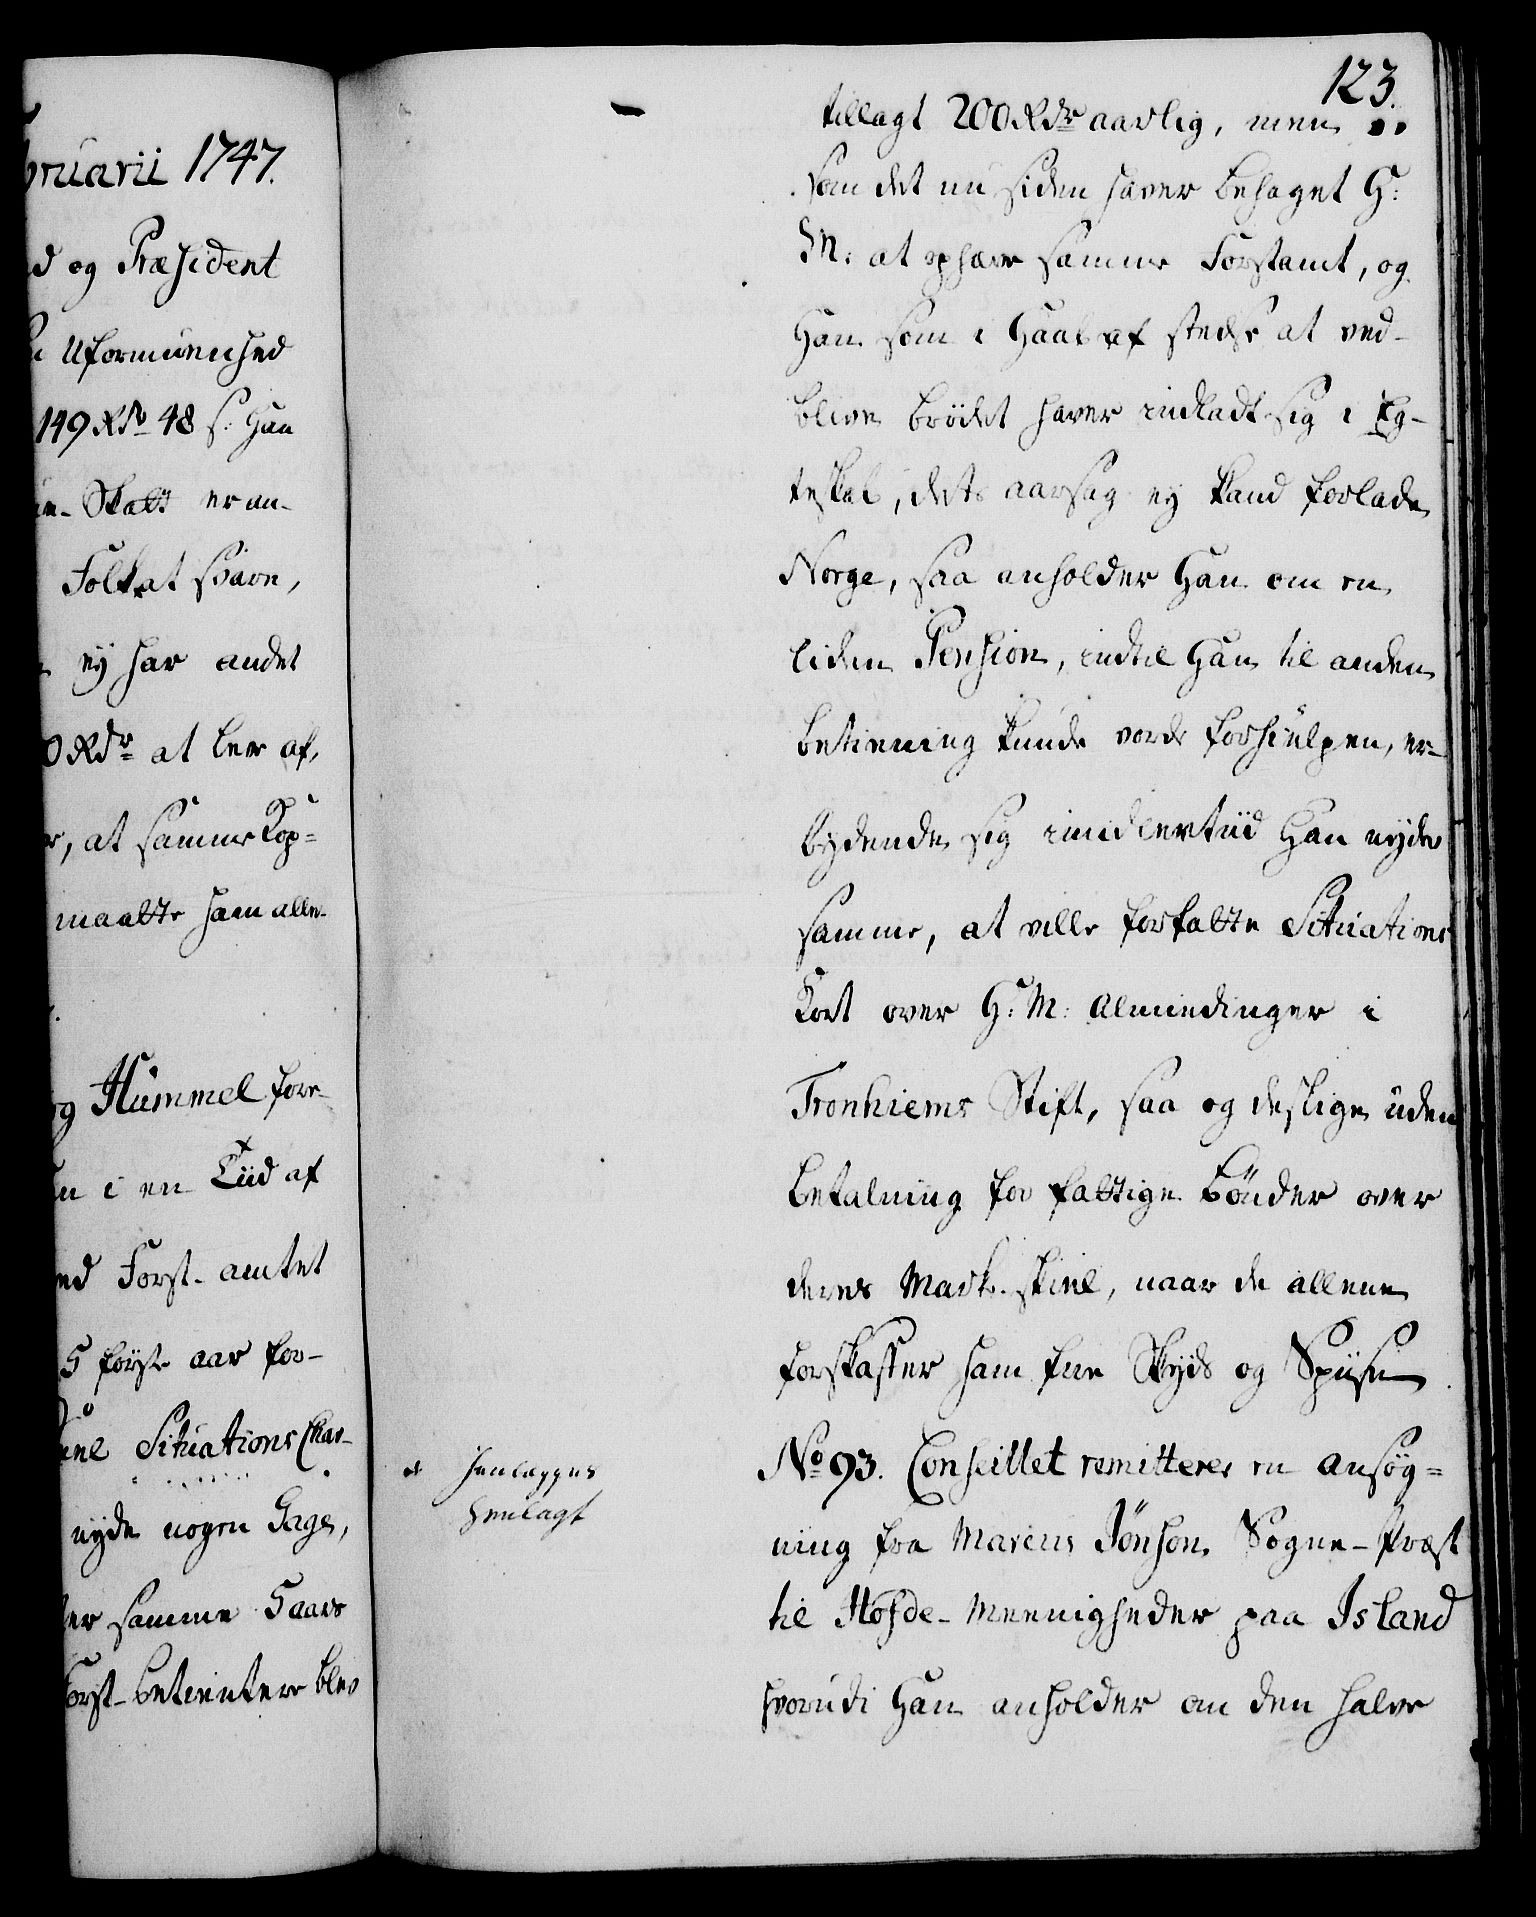 bruarii 1747.
d og Præsident
Uformuenhed
149 Rdr 48 s: Han
Skatt er an-
Folk at svare,
ey har andet
0 Rdr at leve af,
, at samme Kop=
maatte ham alle-
og Hummel fore-
i en Tiid af
ed Forst-amtet
5 første aar for-
Situations Char-
nyde nogen Gage,
er samme 5 aars
Forst-betientere blev
123.
tillagt 200 Rdr aarlig, men
som det nu siden haver behaget H:
M: at ophæve samme Forstamt, og
Han som i Haab af stedse at ved-
blive brødet haver indladt sig i Eg-
teskab, dets aarsag ey kand forlade
Norge, saa anholder Han om en
liden Pension, indtil Han til anden
betiening kunde vorde forhiulpen, er-
bydende sig imidlertiid Han nyder
samme, at ville forfatte Situations
Kort over H: M: Almindinger i
Tronhiems Stift, saa og deslige uden
betalning for fattige Bønder over
deres Mark-skiel, naar de allene
forskaffer ham frie Skyds og Spiise
No 93. Conseillet remitterer en ansøg=
ning fra Marcus Jönson Sogne-Præst
til Höfde-Meenigheder paa Island
hvorudi Han anholder om den halve
henlægges
henlagt